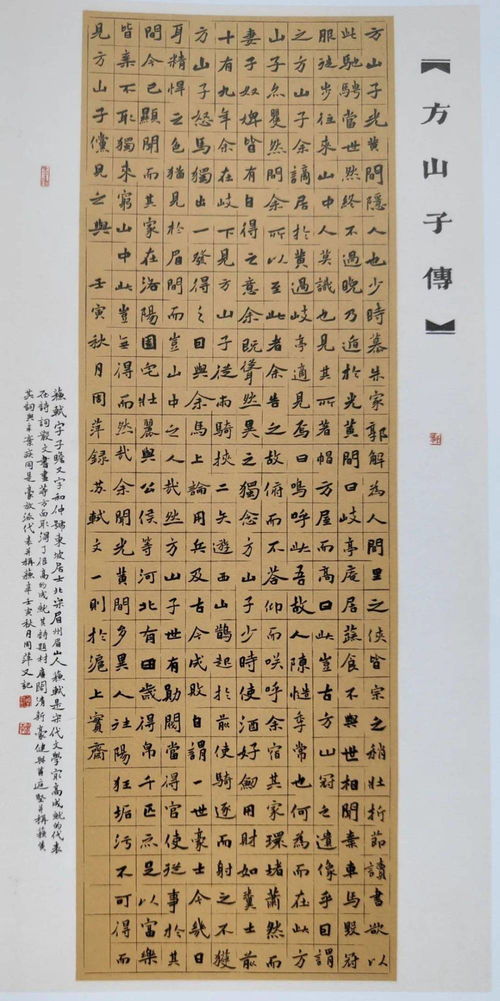 【方山子傳】
方山子光黃間隱人也少時慕朱家郭解為人閭里之俠皆宗之稍壯折節讀書欲以
此馳騁當世然終不遇晚乃遁於光黃間曰岐亭庵居蔬食不與世相聞棄車馬毀冠
服徒步往來山中人莫識也見其所著帽方屋而高曰此豈古方山冠之遺像乎因謂
之方山子余謫居於黃過岐亭適見焉曰嗚呼此吾故人陳慥季常也何為而在此方
山子亦矍然問余所以至此者余告之故俯而不答仰而咲呼余宿其家環堵蕭然而
妻子奴婢皆有自得之意余既聳然異之獨念方山子少時使酒好劍用財如糞土前
十有九年余在岐下見方山子從兩騎挾二矢遊西山鵲起於前使騎逐而射之不獲
方山子怒馬獨出一發得之因與余馬上論用兵及古今成敗自謂一世豪士今幾日
耳精悍之色猶見於眉間而豈山中之人哉然方山子世有勛閥當得官使從事於其
間今已顯聞而其家在洛陽園宅壯麗與公侯等河北有田歲得帛千匹亦足以富樂
皆棄不取獨來窮山中此豈無得而然哉余聞光黃間多異人往陽狂垢污不可得而
見方山子儻見之與 壬寅秋月周萍錄苏軾文一則於滬上寶齋
蘇軾字子瞻又字和仲號東坡居士北宋眉州眉山人蘇軾是宋代文學最高成就的代表
在詩詞散文書畫等方面取得了很高的成就其詩題材廣闊清新豪健與黃庭堅并稱蘇黃
其詞與辛棄疾同是豪放派代表并稱蘇辛壬寅秋月周萍又記